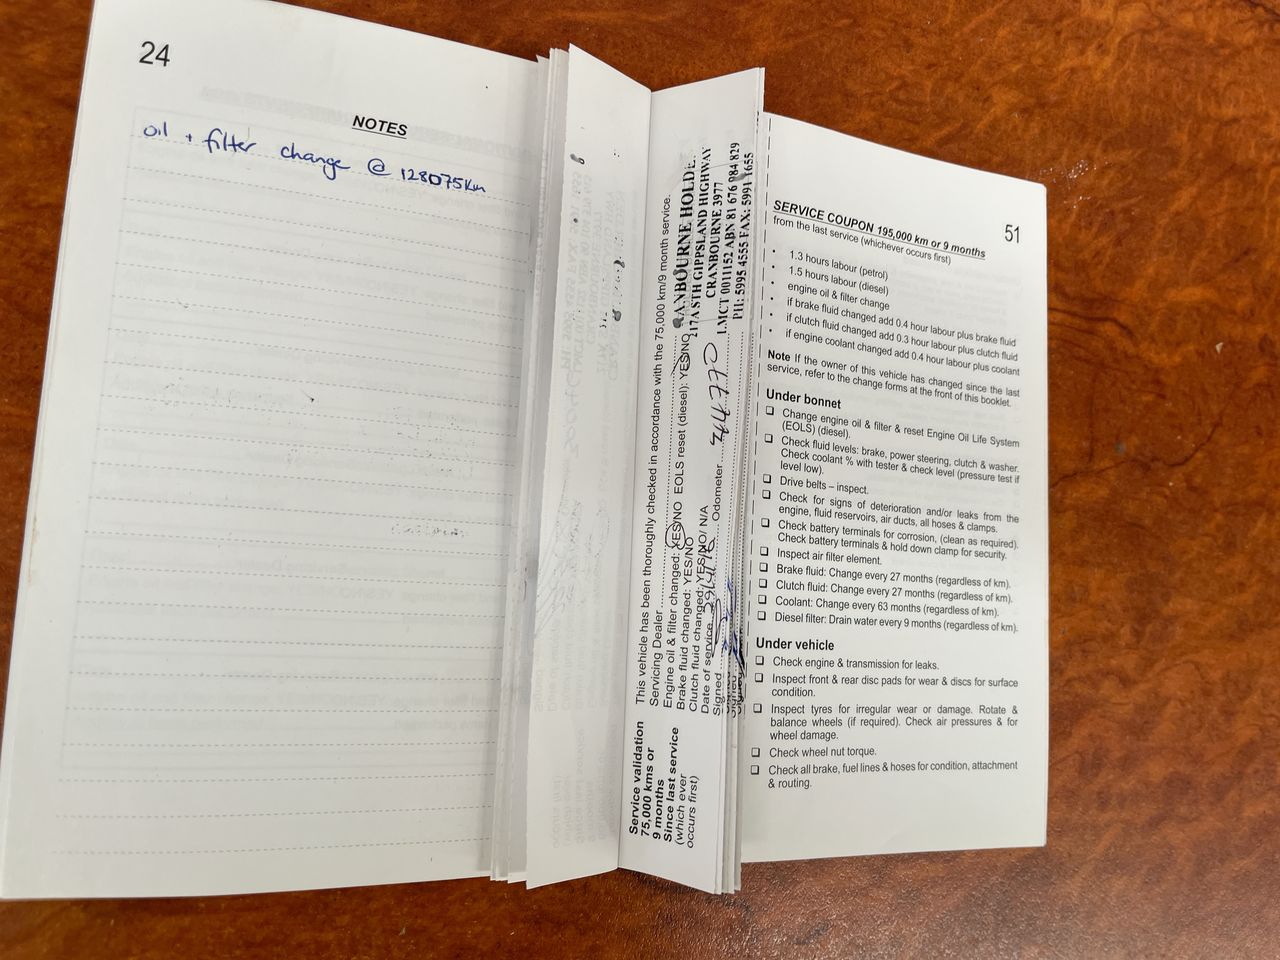 24
NOTES
oil + filter change @ 128075km
Service validation
75,000 kms or
9 months
Since last service
(which ever
occurs first)
This vehicle has been thoroughly checked in accordance with the 75,000 km/9 month service.
Servicing Dealer
Engine oil & filter changed: YES/NO EOLS reset (diesel): YES/NO
Brake fluid changed: YES/NO
Clutch fluid changed: YES/NO/ N/A
Date of service Odometer
Signed
ANBOURNE HOLDE
217A STH GIPPSLAND HIGHWAY
CRANBOURNE 3977
LMCT 0011152 ABN 81 676 984 829
PH: 5995 4555 FAX: 5991 1655
51
SERVICE COUPON 195,000 km or 9 months
from the last service (whichever occurs first)
• 1.3 hours labour (petrol)
• 1.5 hours labour (diesel)
• engine oil & filter change
• if brake fluid changed add 0.4 hour labour plus brake fluid
• if clutch fluid changed add 0.3 hour labour plus clutch fluid
• if engine coolant changed add 0.4 hour labour plus coolant
Note If the owner of this vehicle has changed since the last
service, refer to the change forms at the front of this booklet.
Under bonnet
❑ Change engine oil & filter & reset Engine Oil Life System
(EOLS) (diesel).
❑ Check fluid levels: brake, power steering, clutch & washer.
Check coolant % with tester & check level (pressure test if
level low).
❑ Drive belts – inspect.
❑ Check for signs of deterioration and/or leaks from the
engine, fluid reservoirs, air ducts, all hoses & clamps.
❑ Check battery terminals for corrosion, (clean as required).
Check battery terminals & hold down clamp for security.
❑ Inspect air filter element.
❑ Brake fluid: Change every 27 months (regardless of km).
❑ Clutch fluid: Change every 27 months (regardless of km).
❑ Coolant: Change every 63 months (regardless of km).
❑ Diesel filter: Drain water every 9 months (regardless of km).
Under vehicle
❑ Check engine & transmission for leaks.
❑ Inspect front & rear disc pads for wear & discs for surface
condition.
❑ Inspect tyres for irregular wear or damage. Rotate &
balance wheels (if required). Check air pressures & for
wheel damage.
❑ Check wheel nut torque.
❑ Check all brake, fuel lines & hoses for condition, attachment
& routing.